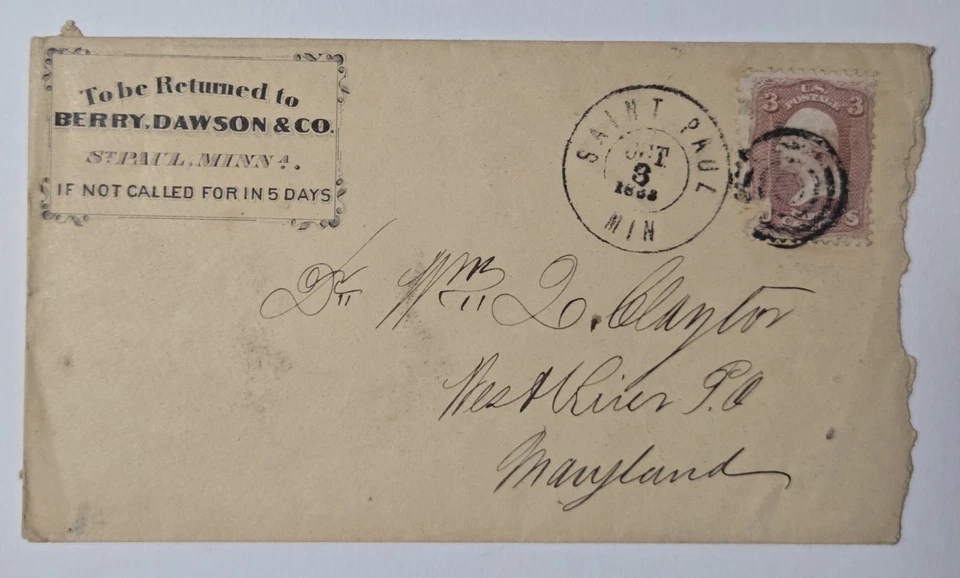 To be Returned to
BERRY, DAWSON & CO.
ST PAUL, MINNA.
IF NOT CALLED FOR IN 5 DAYS
SAINT PAUL
OCT
3
MIN
U.S.
POSTAGE
3 3
Dr. Wm Q. Claytor
West River P.O
Maryland